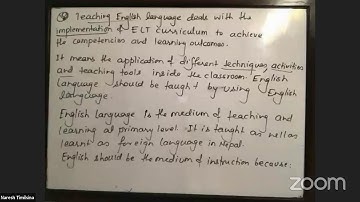 Teaching English language deals with the
implementation of ELT curriculum to achieve
the competencies and learning outcomes.
It means the application of different techniques, activities
and teaching tools inside the classroom. English
language should be taught by using English
language.
English language is the medium of teaching and
learning at primary level. It is taught as well as
learnt as foreign language in Nepal.
English should be the medium of instruction because:
Naresh Timilsina
zoom